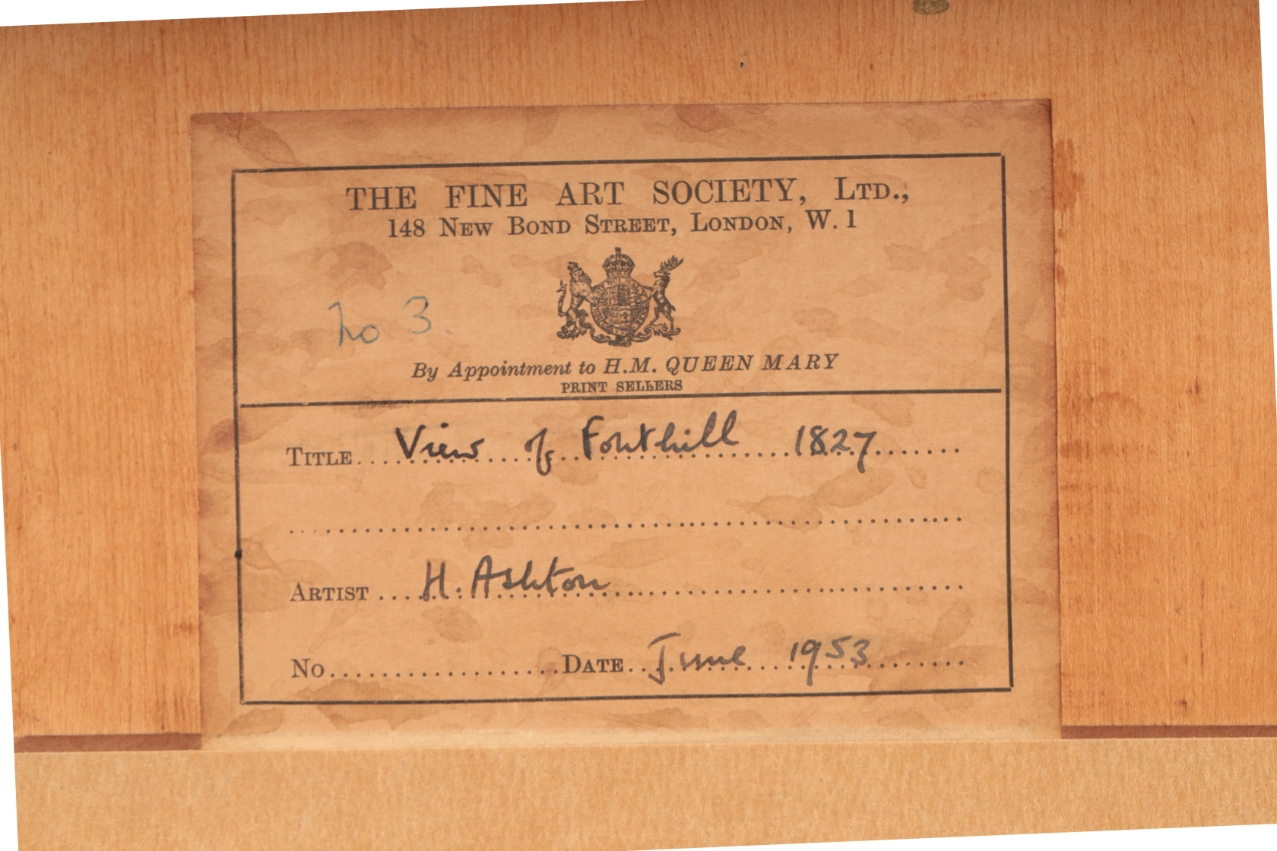 THE FINE ART SOCIETY, LTD.,
148 NEW BOND STREET, LONDON, W. 1
No 3.
By Appointment to H.M. QUEEN MARY
PRINT SELLERS
TITLE View of Fonthill 1827
ARTIST H. Ashton
No. DATE June 1953